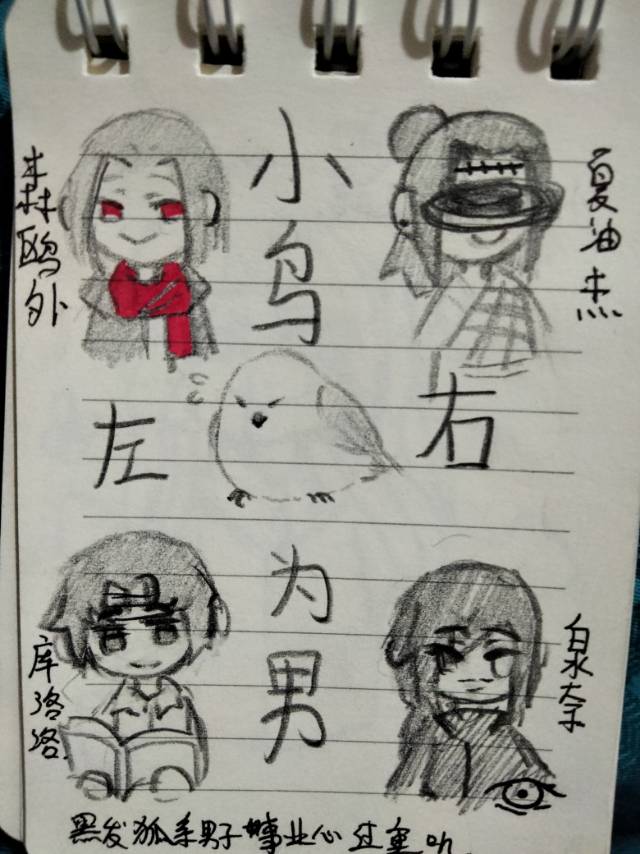 森鸥外
小鸟
夏油杰
左
右
库洛洛
为男
泉奈
黑发狐系男子事业心过重